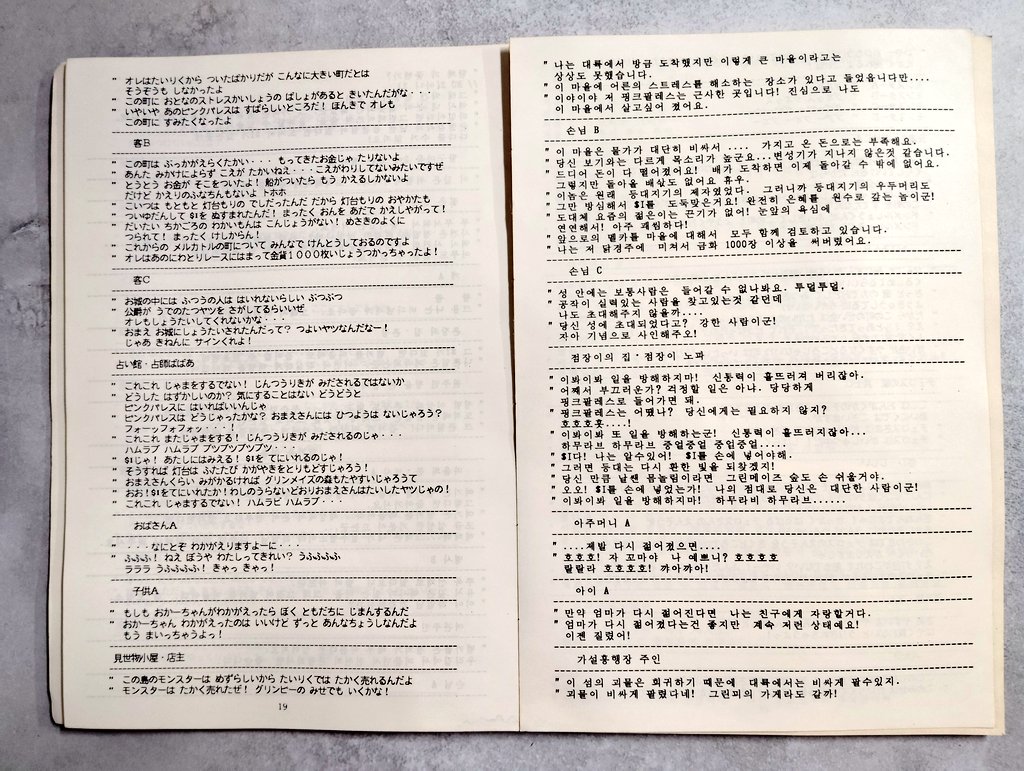 " オレはたいりくから ついたばかりだが こんなに大きい町だとは
そうぞうも しなかったよ
" この町に おとなのストレスかいしょうの ばしょがあると きいたんだがな・・・
" いやいや あのピンクパレスは すばらしいところだ！ ほんきで オレも
この町に すみたくなったよ
客B
" この町は ぶっかがえらくたかい・・・ もってきたお金じゃ たりないよ
" あんた みかけによらず こえが たかいねえ・・・こえがわりしてないみたいですぜ
" とうとう お金が そこをついたよ！ 船がついたら もう かえるしかないよ
だけど かえりのふなちんもないよ トホホ
" こいつは もともと 灯台もりの でしだったんだ だから 灯台もりの おやかたも
" ついゆだんして $1を ぬすまれたんだ！ まったく おんを あだで かえしやがって！
" だいたい ちかごろの わかいもんは こんじょうがない！ めさきのよくに
つられて！ まったく けしからん！
" これからの メルカトルの町について みんなで けんとうしておるのですよ
" オレはあのにわとりレースにはまって金貨１０００枚いじょうつかっちゃったよ！
客C
" お城の中には ふつうの人は はいれないらしい ぶつぶつ
" 公爵が うでのたつヤツを さがしてるらいいぜ
オレもしょうたいしてくれないかな・・・
" おまえ お城にしょうたいされたんだって？ つよいヤツなんだなー！
じゃあ きねんに サインくれよ！
占い館・占師ばばあ
" これこれ じゃまをするでない！ じんつうりきが みだされるではないか
" どうした はずかしいのか？ 気にすることはない どうどうと
ピンクパレスに はいればいいんじゃ
" ピンクパレスは どうじゃったかな？ おまえさんには ひつようは ないじゃろう？
フォーッフォフォッ・・・！
" これこれ またじゃまをする！ じんつうりきが みだされるのじゃ・・・
ハムラブ ハムラブ ブツブツブツブツ・・・
" $1じゃ！ あたしにはみえる！ $1を てにいれるのじゃ！
" そうすれば 灯台は ふたたび かがやきをとりもどすじゃろう！
" おまえさんくらい みがかるければ グリンメイズの森もたやすいじゃろうて
" おお！$1をてにいれたか！わしのうらないどおりおまえさんはたいしたヤツじゃの！
" これこれ じゃまするでない！ ハムラビ ハムラブ・・・
おばさんA
" ・・・なにとぞ わかがえりますよーに・・・
" ふふふ！ ねえ ぼうや わたしってきれい？ うふふふふ
ラララ うふふふふ！ きゃっ きゃっ！
子供A
" もしも おかーちゃんがわかがえったら ぼく ともだちに じまんするんだ
" おかーちゃん わかがえったのは いいけど ずっと あんなちょうしなんだよ
もう まいっちゃうよっ！
見世物小屋・店主
" この島のモンスターは めずらしいから たいりくでは たかく売れるんだよ
" モンスターは たかく売れたぜ！ グリンピーの みせでも いくかな！
19
" 나는 대륙에서 방금 도착했지만 이렇게 큰 마을이라고는
상상도 못했습니다.
" 이 마을에 어른의 스트레스를 해소하는 장소가 있다고 들었읍니다만....
" 이야이야 저 핑크팔레스는 근사한 곳입니다! 진심으로 나도
이 마을에서 살고싶어 졌어요.
손님 B
" 이 마을은 물가가 대단히 비싸서 .... 가지고 온 돈으로는 부족해요.
" 당신 보기와는 다르게 목소리가 높군요...변성기가 지나지 않은것 같습니다.
" 드디어 돈이 다 떨어졌어요! 배가 도착하면 이제 돌아갈 수 밖에 없어요.
그렇지만 돌아올 배삯도 없어요 휴우.
" 이놈은 원래 등대지기의 제자였었다. 그러니까 등대지기의 우두머리도
" 그만 방심해서 $1를 도둑맞은거요! 완전히 은혜를 원수로 갚는 놈이군!
" 도대체 요즘의 젊은이는 끈기가 없어! 눈앞의 욕심에
연연해서! 아주 괘씸하다!
" 앞으로의 멜카틀 마을에 대해서 모두 함께 검토하고 있습니다.
" 나는 저 닭경주에 미쳐서 금화 1000장 이상을 써버렸어요.
손님 C
" 성 안에는 보통사람은 들어갈 수 없나봐요. 투덜투덜.
" 공작이 실력있는 사람을 찾고있는것 같던데
나도 초대해주지 않을까....
" 당신 성에 초대되었다고? 강한 사람이군!
자아 기념으로 사인해주오!
점장이의 집·점장이 노파
" 이봐이봐 일을 방해하지마! 신통력이 흩뜨러져 버리잖아.
" 어째서 부끄러운가? 걱정할 일은 아냐. 당당하게
핑크팔레스로 들어가면 돼.
" 핑크팔레스는 어땠나? 당신에게는 필요하지 않지?
호호호홋....!
" 이봐이봐 또 일을 방해하는군! 신통력이 흩뜨러지잖아...
하무라브 하무라브 중얼중얼 중얼중얼.....
" $1다! 나는 알수있어! $1를 손에 넣어야해.
" 그러면 등대는 다시 환한 빛을 되찾겠지!
" 당신 만큼 날쌘 몸놀림이라면 그린메이즈 숲도 손 쉬울거야.
" 오오! $1를 손에 넣었는가! 나의 점대로 당신은 대단한 사람이군!
" 이봐이봐 일을 방해하지마! 하무라비 하무라브......
아주머니 A
" ....제발 다시 젊어졌으면....
" 호호호! 자 꼬마야 나 예쁘니? 호호호호
랄랄라 호호호호! 꺄아꺄아!
아이 A
" 만약 엄마가 다시 젊어진다면 나는 친구에게 자랑할거다.
" 엄마가 다시 젊어졌다는건 좋지만 계속 저런 상태예요!
이젠 질렸어!
가설흥행장 주인
" 이 섬의 괴물은 희귀하기 때문에 대륙에서는 비싸게 팔수있지.
" 괴물이 비싸게 팔렸다네! 그린피의 가게라도 갈까!